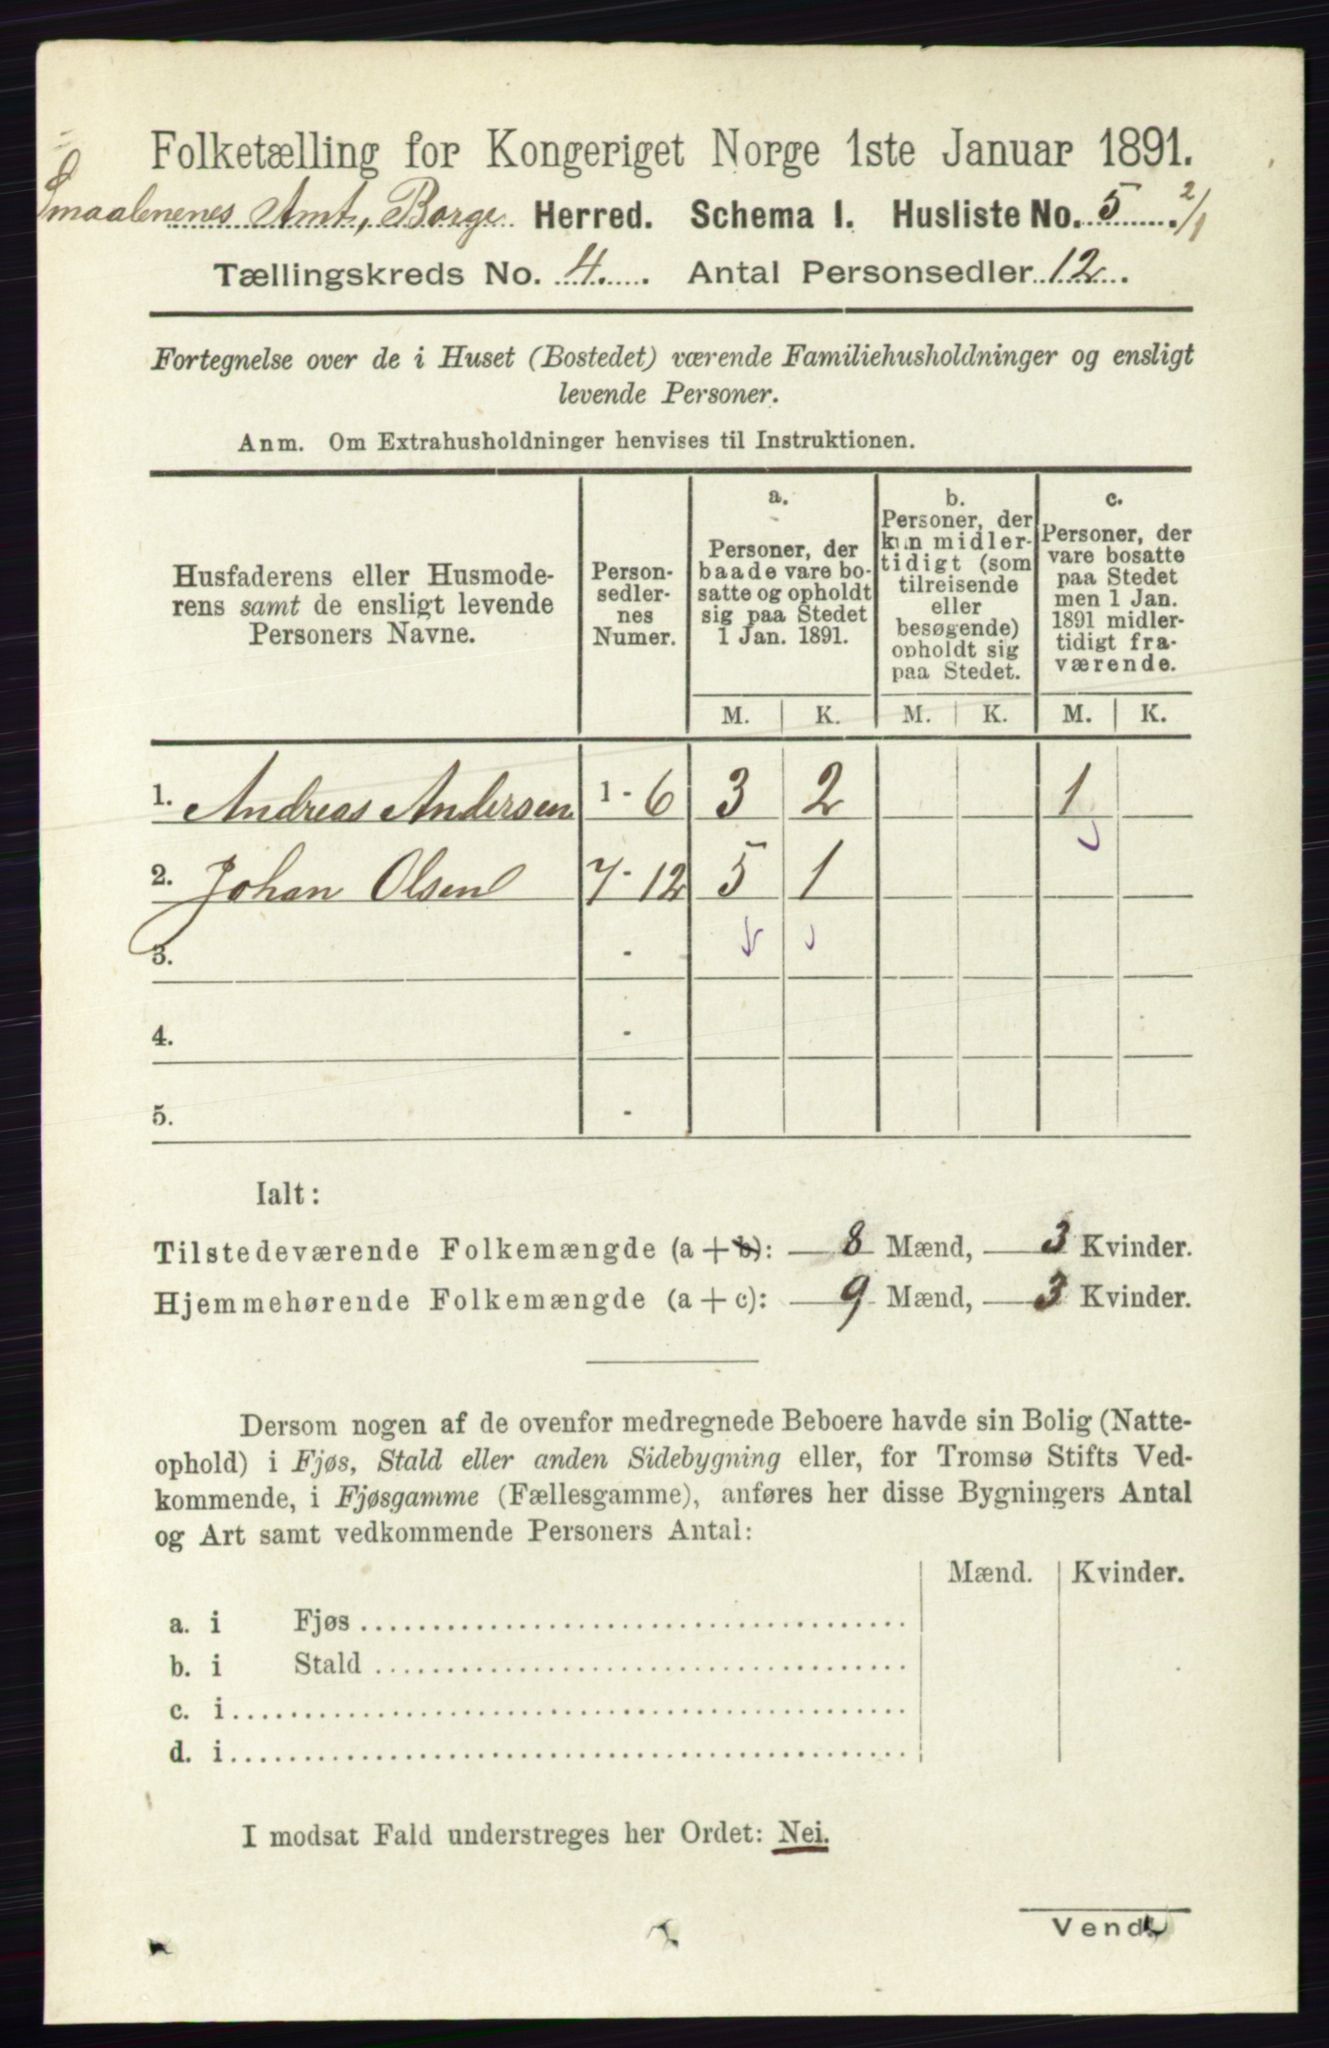 Folketælling for Kongeriget Norge 1ste Januar 1891.
Smaalenenes Amt, Borge Herred. Schema I. Husliste No. 5 2/1
Tællingskreds No. 4. Antal Personsedler 12
Fortegnelse over de i Huset (Bostedet) værende Familiehusholdninger og ensligt
levende Personer.
Anm. Om Extrahusholdninger henvises til Instruktionen.
Husfaderens eller Husmode-
rens samt de ensligt levende
Personers Navne.
Person-
sedler-
nes
Numer.
a.
Personer, der
baade vare bo-
satte og opholdt
sig paa Stedet
1 Jan. 1891.
b.
Personer, der
kun midler-
tidigt (som
tilreisende
eller
besøgende)
opholdt sig
paa Stedet.
c.
Personer, der
vare bosatte
paa Stedet
men 1 Jan.
1891 midler-
tidigt fra-
værende.
M. K. M. K. M. K.
1. Andreas Andersen 1 - 6 3 2 1
2. Johan Olsen 7 - 12 5 1
3. -
4. -
5. -
Ialt:
Tilstedeværende Folkemængde (a + b): 8 Mænd, 3 Kvinder.
Hjemmehørende Folkemængde (a + c): 9 Mænd, 3 Kvinder.
Dersom nogen af de ovenfor medregnede Beboere havde sin Bolig (Natte-
ophold) i Fjøs, Stald eller anden Sidebygning eller, for Tromsø Stifts Ved-
kommende, i Fjøsgamme (Fællesgamme), anføres her disse Bygningers Antal
og Art samt vedkommende Personers Antal:
Mænd. Kvinder.
a. i Fjøs
b. i Stald
c. i
d. i
I modsat Fald understreges her Ordet: Nei.
Vend.